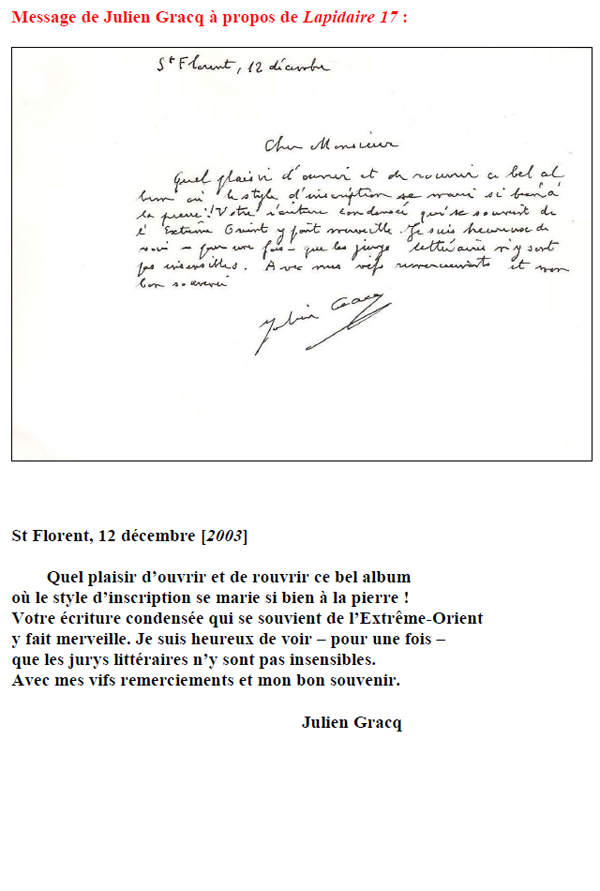 Message de Julien Gracq à propos de Lapidaire 17 :
St Florent, 12 décembre
Cher Monsieur
Quel plaisir d'ouvrir et de rouvrir ce bel al
bum où le style d'inscription se marie si bien à
la pierre ! Votre écriture condensée qui se souvient de
l'Extrême Orient y fait merveille. Je suis heureux de
voir – pour une fois – que les jurys littéraires n'y sont
pas insensibles. Avec mes vifs remerciements et mon
bon souvenir
Julien Gracq
St Florent, 12 décembre [2003]
Quel plaisir d’ouvrir et de rouvrir ce bel album
où le style d’inscription se marie si bien à la pierre !
Votre écriture condensée qui se souvient de l’Extrême-Orient
y fait merveille. Je suis heureux de voir – pour une fois –
que les jurys littéraires n’y sont pas insensibles.
Avec mes vifs remerciements et mon bon souvenir.
Julien Gracq